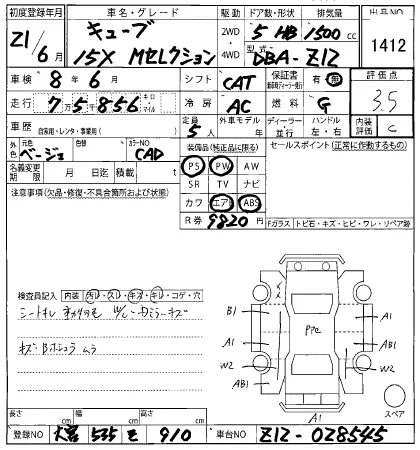 初度登録年月 車名・グレード 駆動 ドア数・形状 排気量 出品NO
21/6月 キューブ 15X Mセレクション 2WD 4WD 5 HB 1500 cc 1412
型式 DBA-Z12
車検 8年6月 シフト CAT 保証書 有 無 評価点
走行 7万5千856 キロ・マイル 冷房 AC 燃料 G 3.5
車歴 自家用・レンタ・事業用( ) 定員 5人 外車モデル 年 ディーラー・並行 ハンドル 左・右 内装評価 C
外色 元色 ベージュ 色替 カラーNO CAD 装備品(純正品に限る) セールスポイント(正常に作動するもの)
名義変更期限 月 日迄 積載 t PS PW AW
注意事項(欠品・修復・不具合箇所および状態) SR TV ナビ
カワ エアB ABS
R券 9820円 Fガラス トビ石・キズ・ヒビ・ワレ・リペア跡
検査員記入 内装 汚レ・スレ・キズ・キレ・コゲ・穴
B1 A1
PPC
A1 A1
W2 W2
AB1 AB1
A1 スペア
キズ・Bホシュウ ムラ
長さ cm 幅 cm 高さ cm
登録NO 大宮 535 モ 910 車台NO Z12-028545